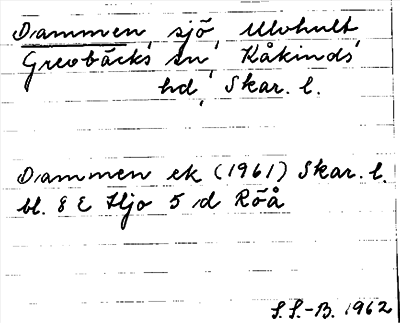 Dammen, sjö, Ulvhult,
Grevbäcks sn, Kåkinds
hd, Skar. l.
Dammen ek (1961) Skar. l.
bl. 8 E Hjo 5 d Röå
S.S.-B. 1962